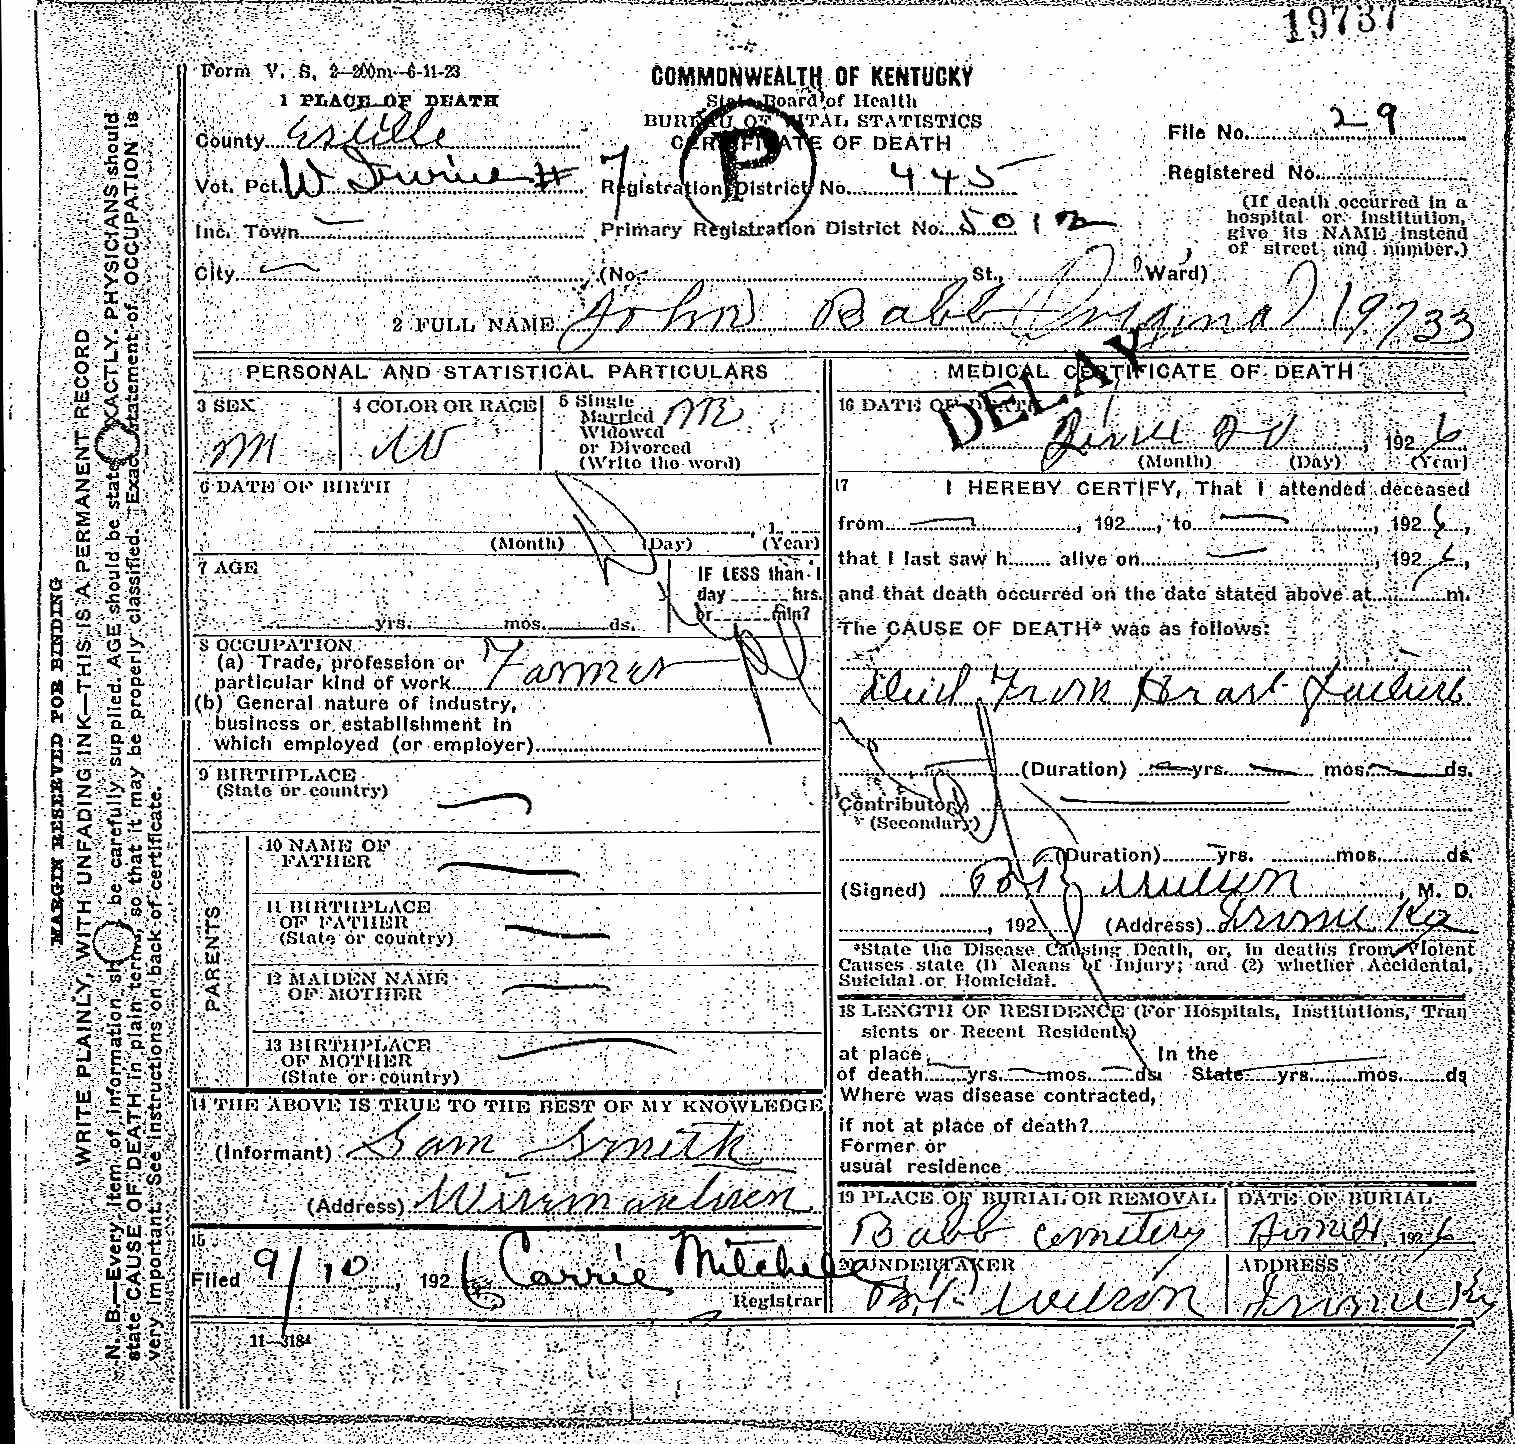 19737
Form V. S. 2—200m—6-11-23
COMMONWEALTH OF KENTUCKY
State Board of Health
BUREAU OF VITAL STATISTICS
CERTIFICATE OF DEATH
P
1 PLACE OF DEATH
County Estille
Vot. Pct. W Irvine # 7
Inc. Town
City
Registration District No. 445
Primary Registration District No. 5012
(No. St., Ward)
File No. 29
Registered No.
(If death occurred in a
hospital or institution,
give its NAME instead
of street and number.)
2 FULL NAME John Babb (Original 19733
DELAY
PERSONAL AND STATISTICAL PARTICULARS
3 SEX
M
4 COLOR OR RACE
W
5 Single
Married
Widowed
or Divorced
(Write the word)
M
6 DATE OF BIRTH
, 1
(Month) (Day) (Year)
7 AGE
yrs. mos. ds.
IF LESS than 1
day hrs.
or min?
8 OCCUPATION
(a) Trade, profession or
particular kind of work Farmer
(b) General nature of industry,
business or establishment in
which employed (or employer)
9 BIRTHPLACE
(State or country)
PARENTS
10 NAME OF
FATHER
11 BIRTHPLACE
OF FATHER
(State or country)
12 MAIDEN NAME
OF MOTHER
13 BIRTHPLACE
OF MOTHER
(State or country)
14 THE ABOVE IS TRUE TO THE BEST OF MY KNOWLEDGE
(Informant) Sam Smith
(Address)
15
Filed 9/10, 1926 Carrie Mitchell
Registrar
11—3184
MEDICAL CERTIFICATE OF DEATH
16 DATE OF DEATH
June 20, 1926
(Month) (Day) (Year)
17 I HEREBY CERTIFY, That I attended deceased
from , 192 , to , 1926,
that I last saw h alive on , 1926,
and that death occurred on the date stated above at m.
The CAUSE OF DEATH* was as follows:
Died From Heart Failure
(Duration) yrs. mos. ds.
Contributory
(Secondary)
(Duration) yrs. mos. ds.
(Signed) Wilson, M. D.
, 192 (Address) Irvine Ky
*State the Disease Causing Death, or, in deaths from Violent
Causes state (1) Means of Injury; and (2) whether Accidental,
Suicidal or Homicidal.
18 LENGTH OF RESIDENCE (For Hospitals, Institutions, Tran
sients or Recent Residents)
at place In the
of death yrs. mos. ds. State yrs. mos. ds
Where was disease contracted,
if not at place of death?
Former or
usual residence
19 PLACE OF BURIAL OR REMOVAL
Babb cemetery
DATE OF BURIAL
June 21, 1926
20 UNDERTAKER
Wilson
ADDRESS
Irvine Ky
MARGIN RESERVED FOR BINDING
WRITE PLAINLY, WITH UNFADING INK—THIS IS A PERMANENT RECORD
N. B.—Every item of information should be carefully supplied. AGE should be stated EXACTLY. PHYSICIANS should
state CAUSE OF DEATH in plain terms, so that it may be properly classified. Exact statement of OCCUPATION is
very important. See instructions on back of certificate.